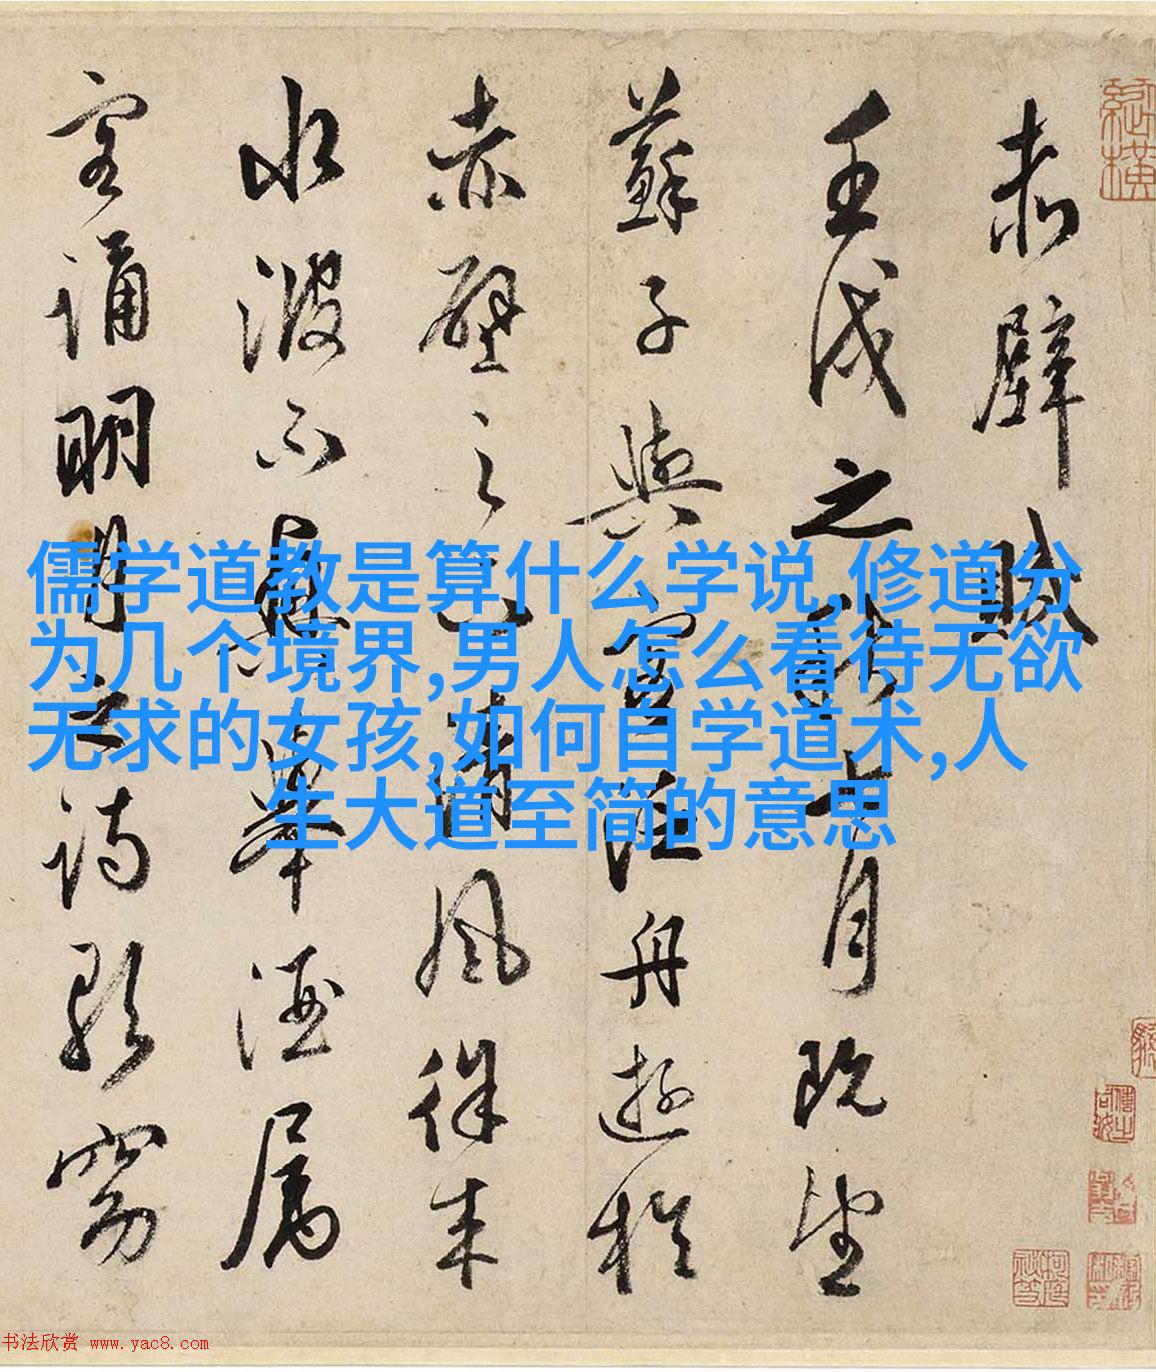 赤壁賦
壬戌之秋七月既望
蘇子與客泛舟遊於
赤壁之下清風徐来
水波不興舉酒屬
客誦明月之詩歌窈
儒学道教是算什么学说,修道分
为几个境界,男人怎么看待无欲
无求的女孩,如何自学道术,人
生大道至简的意思
书法欣赏 www.yac8.com